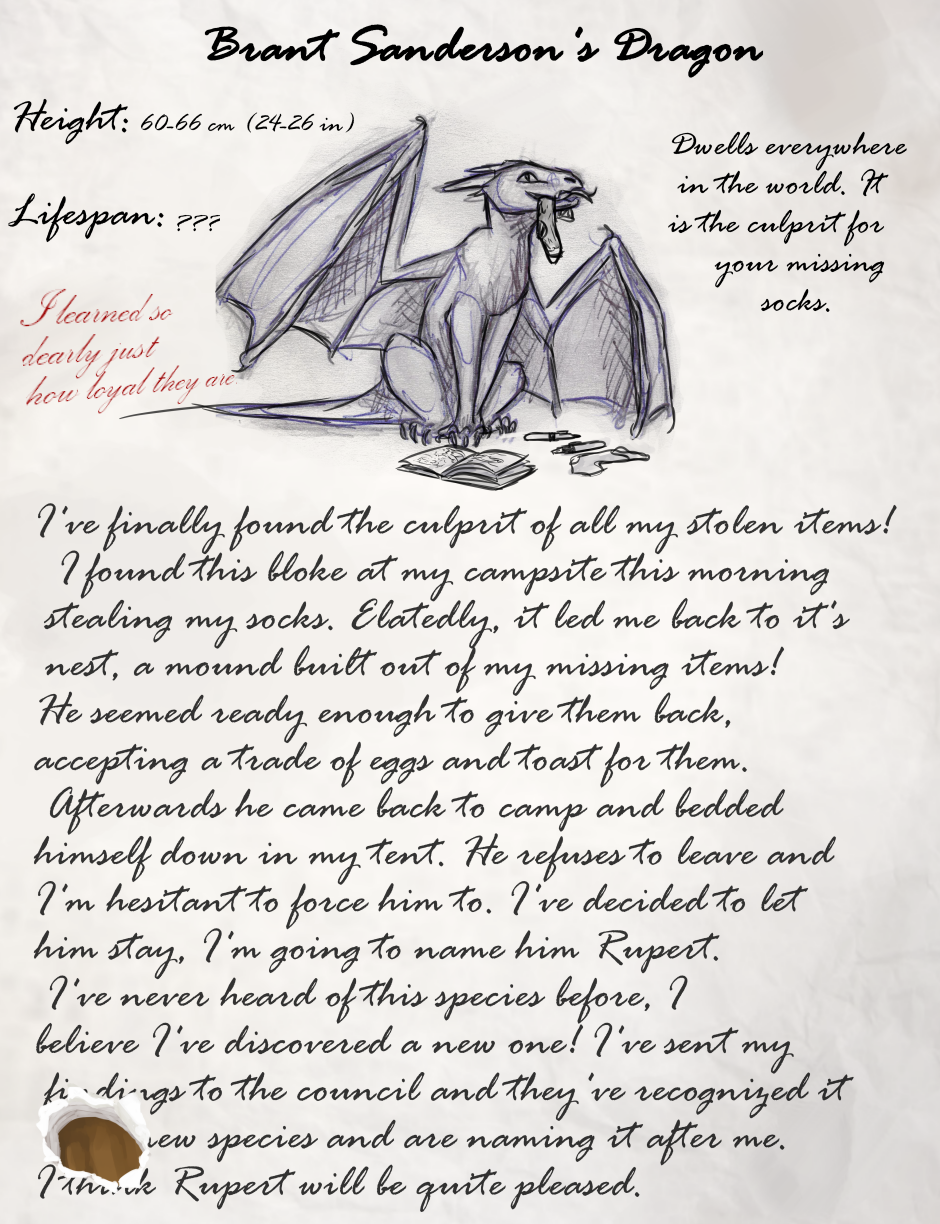 Brant Sanderson's Dragon
Height: 60-66 cm (24-26 in)
Lifespan: ???
Dwells everywhere
in the world. It
is the culprit for
your missing
socks.
I learned so
dearly just
how loyal they are.
I've finally found the culprit of all my stolen items!
I found this bloke at my campsite this morning
stealing my socks. Elatedly, it led me back to it's
nest, a mound built out of my missing items!
He seemed ready enough to give them back,
accepting a trade of eggs and toast for them.
Afterwards he came back to camp and bedded
himself down in my tent. He refuses to leave and
I'm hesitant to force him to. I've decided to let
him stay, I'm going to name him Rupert.
I've never heard of this species before, I
believe I've discovered a new one! I've sent my
findings to the council and they've recognized it
new species and are naming it after me.
I think Rupert will be quite pleased.